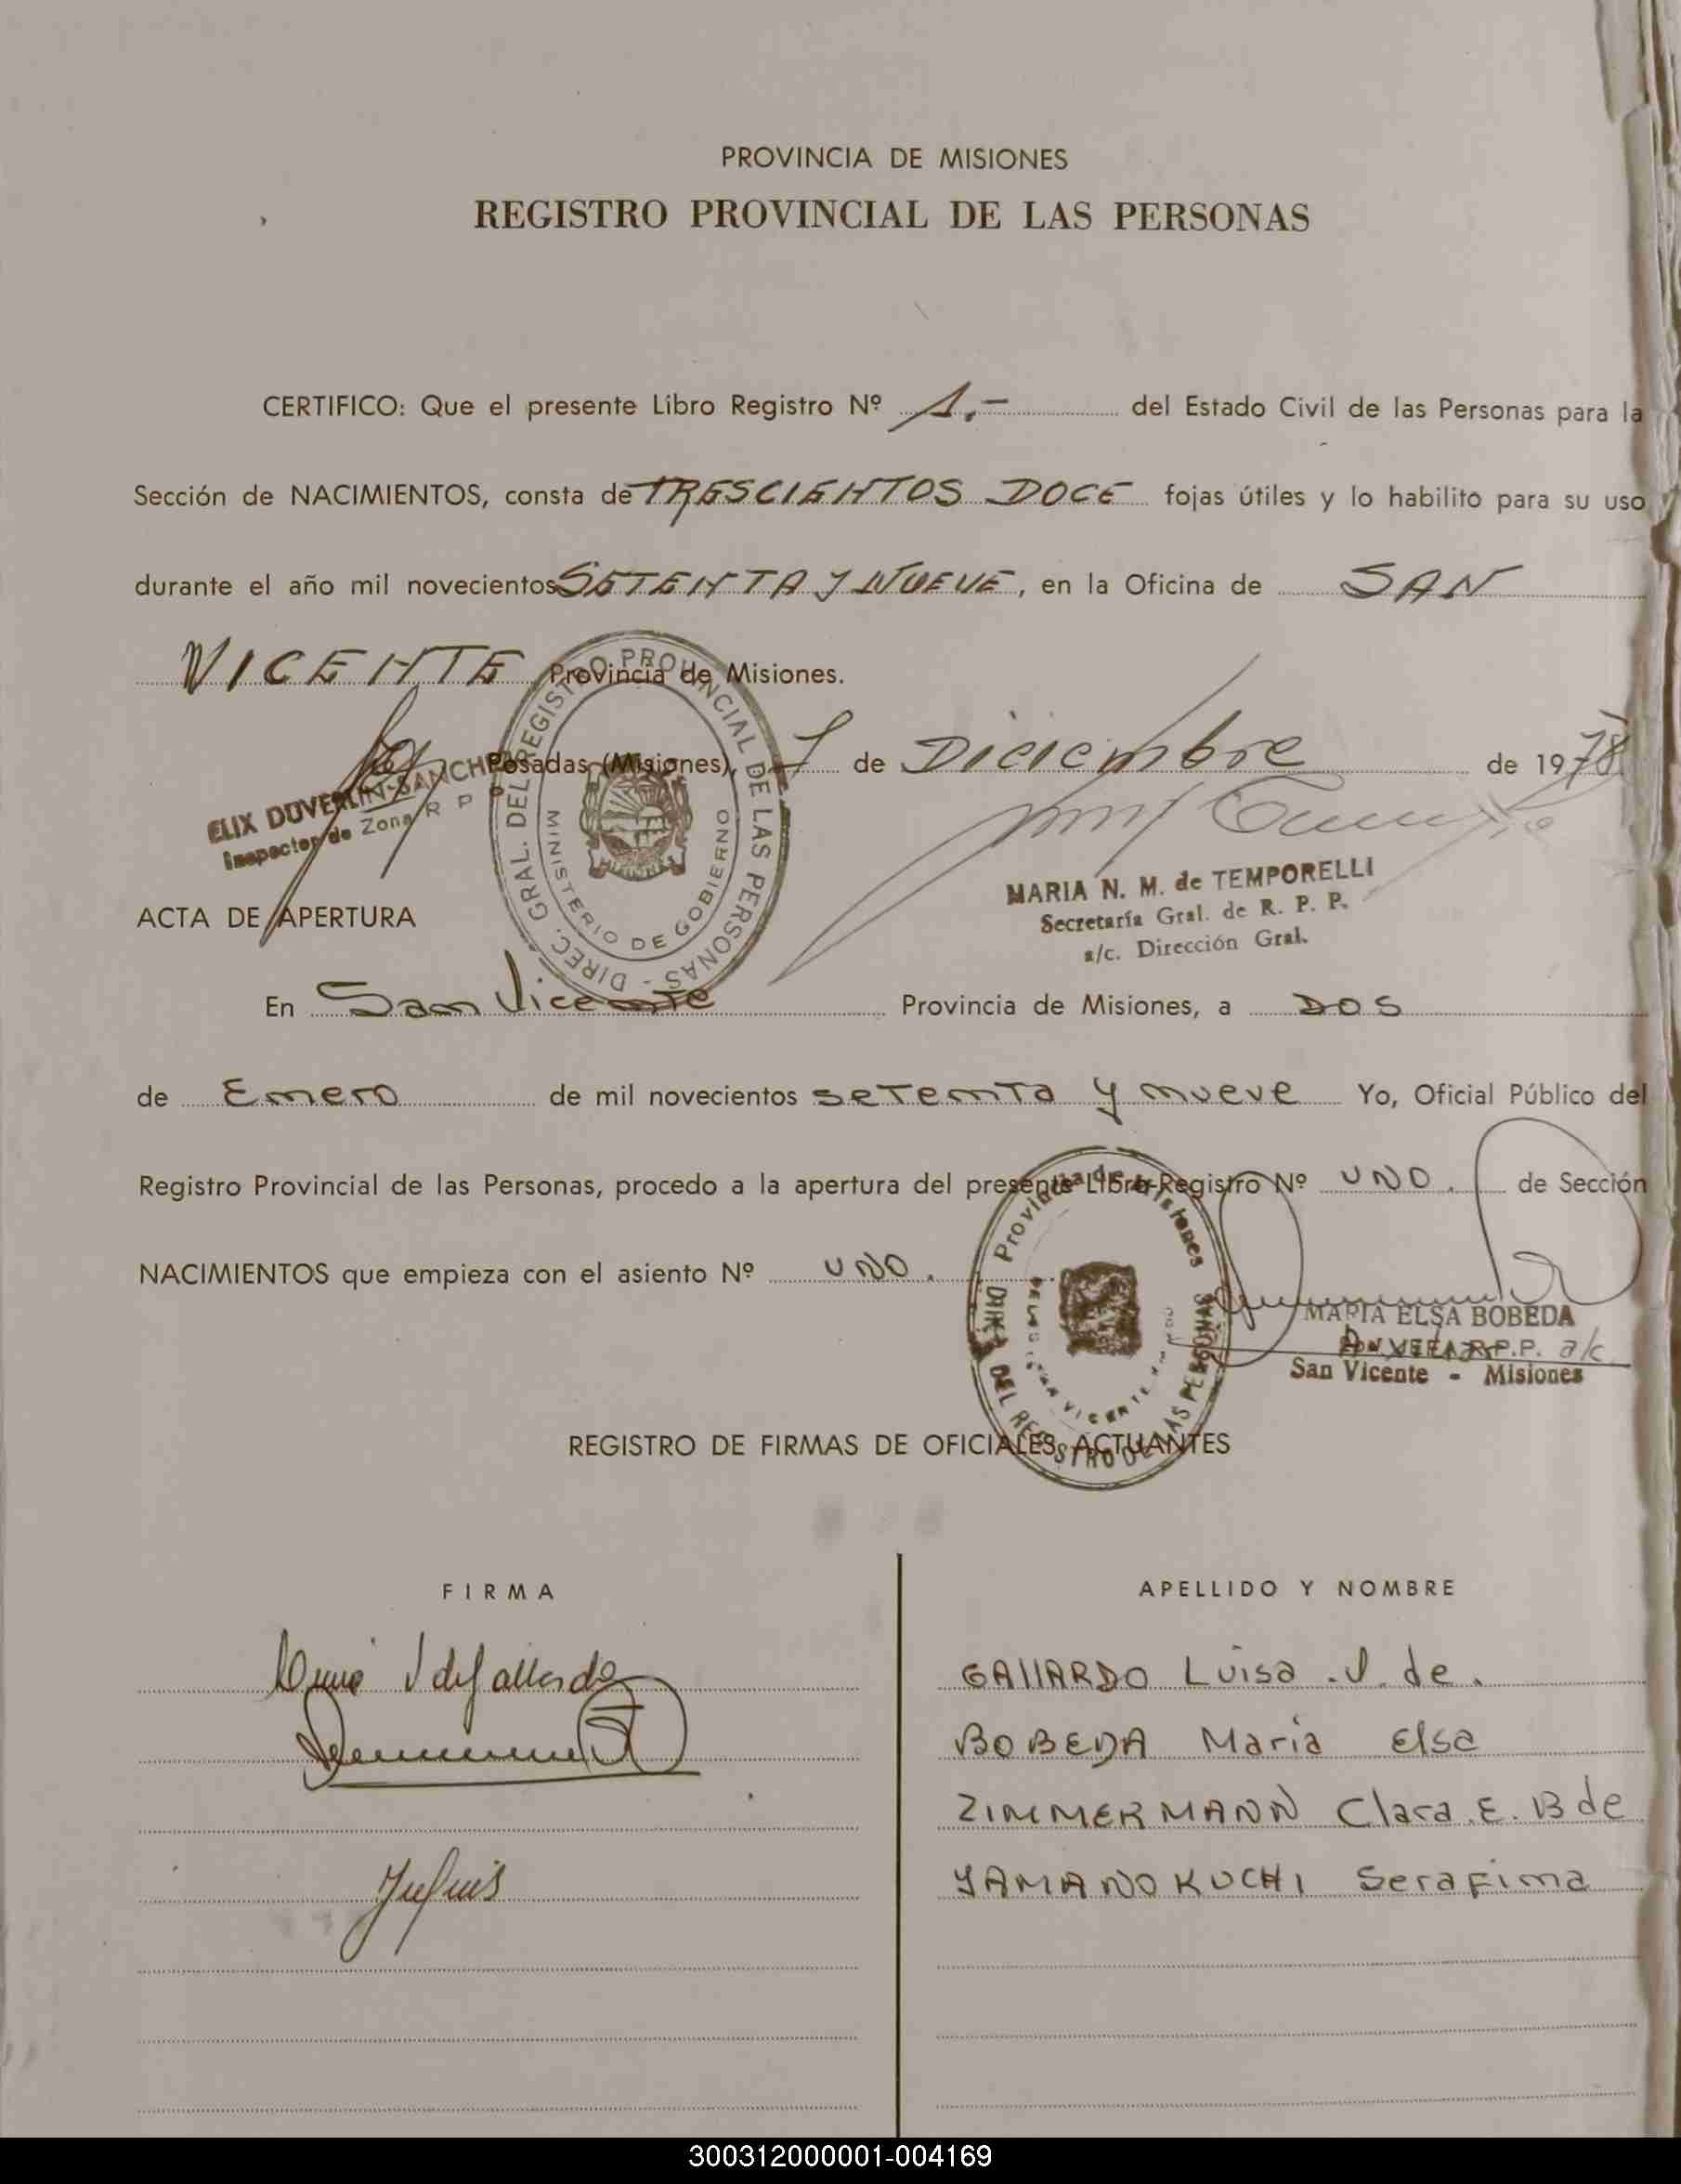 PROVINCIA DE MISIONES
REGISTRO PROVINCIAL DE LAS PERSONAS
CERTIFICO: Que el presente Libro Registro Nº 1.- del Estado Civil de las Personas para la
Sección de NACIMIENTOS, consta de TRESCIENTOS DOCE fojas útiles y lo habilito para su uso
durante el año mil novecientos SETENTA Y NUEVE, en la Oficina de SAN
VICENTE Provincia de Misiones.
Posadas (Misiones), 7 de Diciembre de 1978
ELIX DUVERLIN SANCHE
Inspector de Zona R P P
DIREC. GRAL. DEL REGISTRO PROVINCIAL DE LAS PERSONAS -
MINISTERIO DE GOBIERNO
MARIA N. M. de TEMPORELLI
Secretaría Gral. de R. P. P.
a/c. Dirección Gral.
ACTA DE APERTURA
En San Vicente Provincia de Misiones, a DOS
de Enero de mil novecientos setenta y nueve Yo, Oficial Público del
Registro Provincial de las Personas, procedo a la apertura del presente Libro-Registro Nº UNO. de Sección
NACIMIENTOS que empieza con el asiento Nº UNO.
Provincia de Misiones
DEL REGISTRO DE LAS PERSONAS
SAN VICENTE
MARIA ELSA BOBEDA
R.P.P. a/c
San Vicente - Misiones
REGISTRO DE FIRMAS DE OFICIALES ACTUANTES
FIRMA APELLIDO Y NOMBRE
GALLARDO Luisa .J. de.
BOBEDA María Elsa
ZIMMERMANN Clara E. B de
YAMANOKUCHI Serafina
300312000001-004169